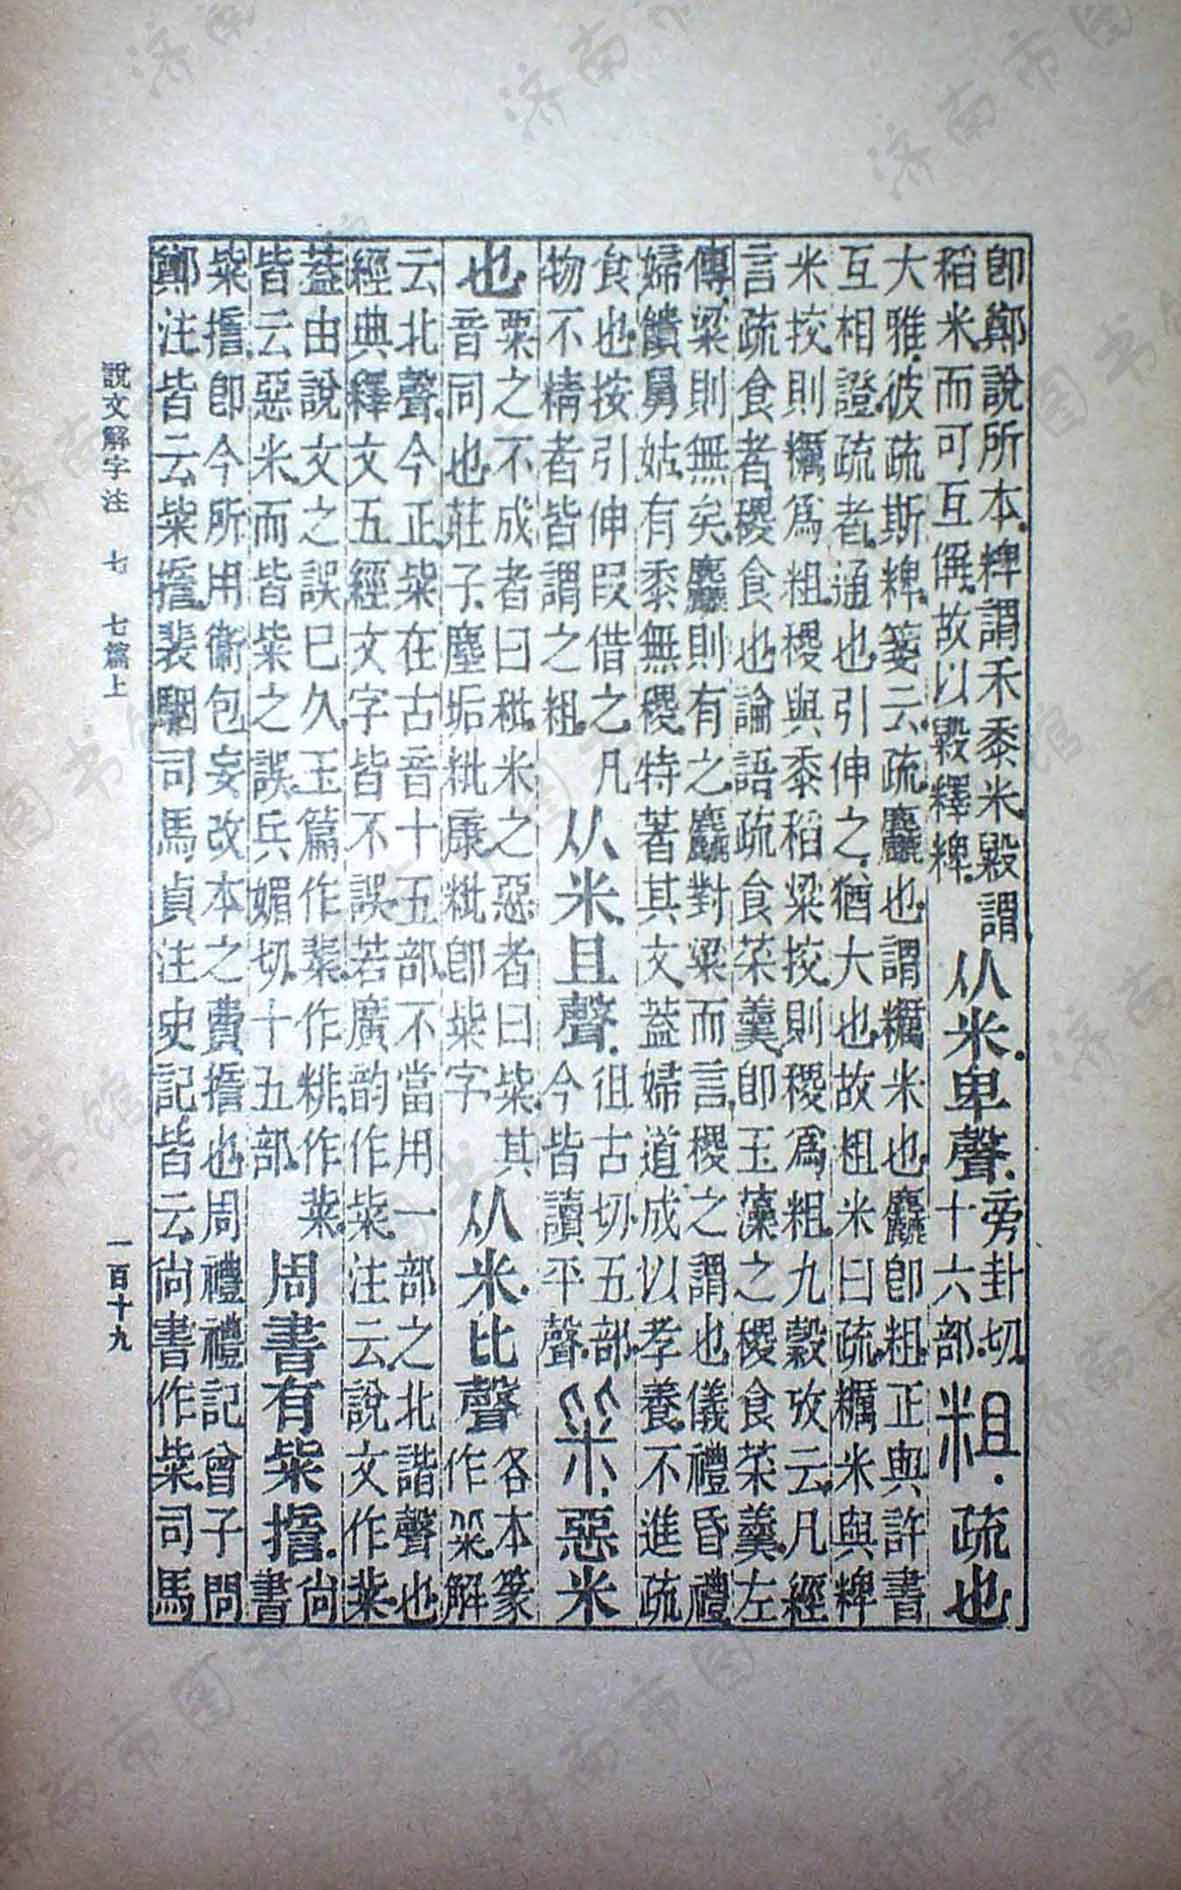 卽鄭說所本。粺謂禾黍米。毇謂
稻米。而可互偁。故以毇釋粺。
从米。卑聲。
旁卦切
十六部。
粗。疏也
大雅。彼疏斯粺。箋云。疏麤也。謂糲米也。麤卽粗。正與許書
互相證。疏者。通也。引伸之。猶大也。故粗米曰疏。糲米與粺
米挍。則糲爲粗。稷與黍稻粱挍。則稷爲粗。九穀攷云。凡經
言疏食者。稷食也。論語疏食菜羹。卽玉藻之稷食菜羹。左
傳。粱則無矣。麤則有之。麤對粱而言。稷之謂也。儀禮昏禮
婦饋舅姑。有黍無稷。特著其文。蓋婦道成以孝養。不進疏
食也。按引伸叚借之。凡
物不精者皆謂之粗。
从米。且聲。
徂古切。五部。
今皆讀平聲。
粊。惡米
也
粟之不成者曰秕。米之惡者曰粊。其
音同也。莊子。塵垢粃康。粃卽粊字
从米。比聲
各本篆
作𥹻。解
云北聲。今正。粊在古音十五部。不當用一部之北諧聲也。
經典釋文五經文字皆不誤。若廣韵作粊。注云。說文作𥹻。
蓋由說文之誤巳久。玉篇作
皆云惡米。而皆粊之誤。兵媚切。十五部。
周書有粊誓。
尙
書
粊誓。卽今所用衞包妄改本之費誓也。周禮禮記曾子問
鄭注。皆云粊誓。裴駰司馬貞注史記皆云尙書作粊。司馬
說文解字注 七 七篇上
一百十九